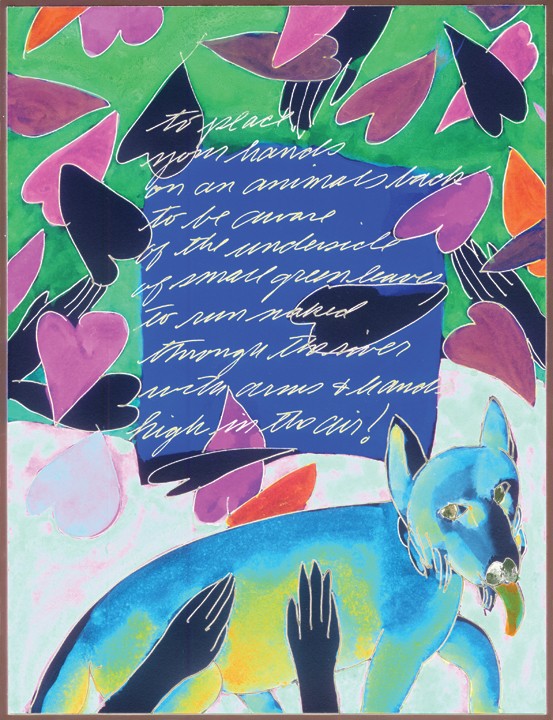 to place
your hands
on an animals back
to be aware
of the underside
of small green leaves
to run naked
through the river
with arms & hands
high in the air!